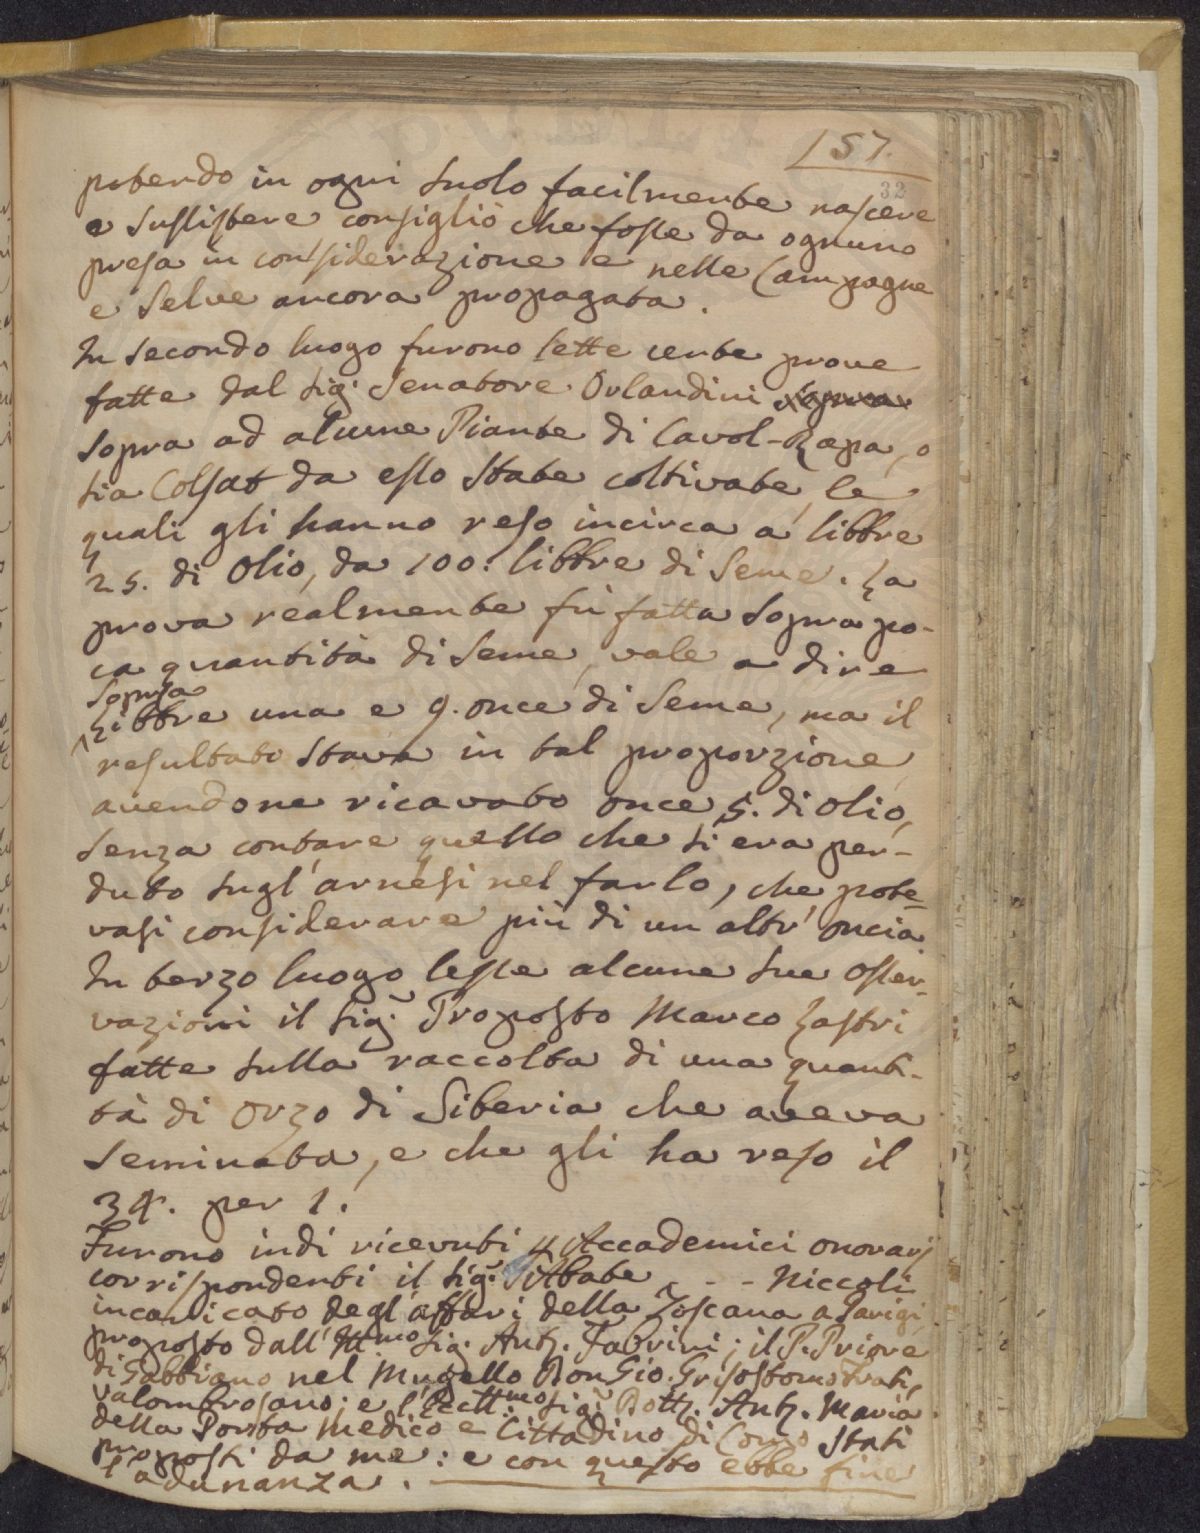 157.
32
potendo in ogni suolo facilmente nascere
e sussistere consigliò che fosse da ognuno
presa in considerazione e nelle Campagne
e Selve ancora propagata.
In secondo luogo furono lette certe prove
fatte dal Sig: Senatore Orlandini sopra
Sopra ad alcune Piante di Cavol-Rapa, o
sia Colsat da esso state coltivate, le
quali gli hanno reso incirca a libbre
25. di Olio, da 100: libbre di Seme. La
prova realmente fù fatta sopra po-
ca quantità di Seme, vale a dire
sopra
Libbre una e 9. once di Seme, ma il
resultato stava in tal proporzione
avendone ricavato once 5. di olio,
senza contare quello che si era per-
duto sugl'arnesi nel farlo, che pote-
vasi considerare più di un altr'oncia.
In terzo luogo lesse alcune sue osser-
vazioni il Sig: Proposto Marco Lastri
fatte sulla raccolta di una quanti-
tà di Orzo di Siberia che aveva
seminato, e che gli ha reso il
34. per 1.
Furono indi ricevuti p Accademici onorarj
corrispondenti il Sig: Abate - - - Niccoli
incaricato degl'affari della Toscana a Parigi
proposto dall'Ill:mo Sig: Ant. Fabrini; il P. Priore
di Gabbiano nel Mugello Don Gio. Grisostomo Frati,
valombrosano; e l'Eccell:mo Sig: Dott. Ant. Maria
della Porta Medico e Cittadino di Como stati
proposti da me: e con questo ebbe fine
l'adunanza.